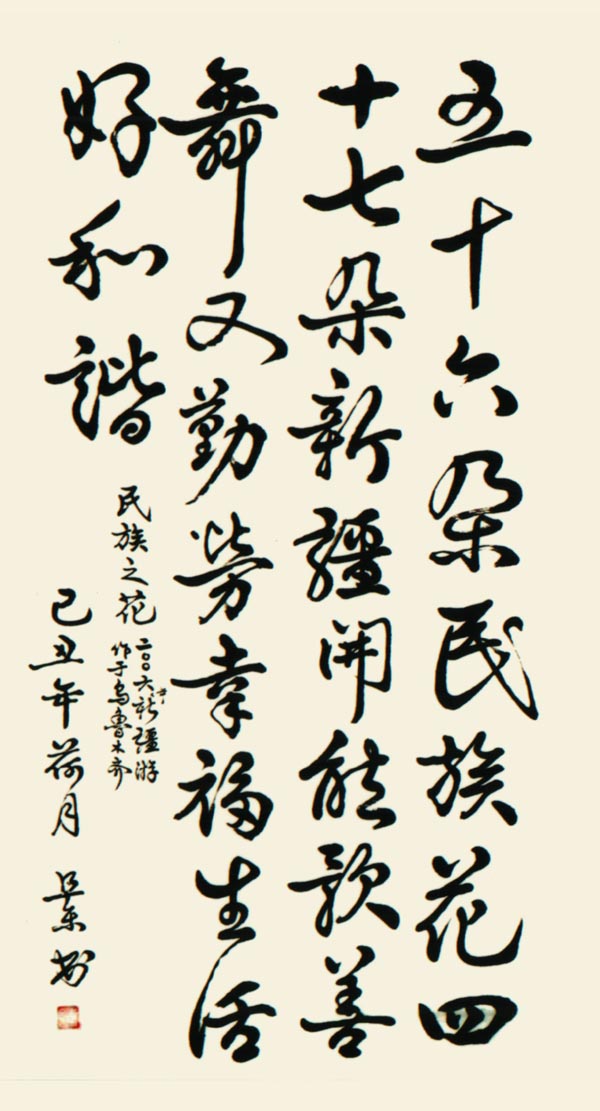 五十六朵民族花四
十七朵新疆開能歌善
舞又勤勞幸福生活
好和諧
民族之花
二〇〇六年新疆游
作于烏魯木齊
己丑年荷月